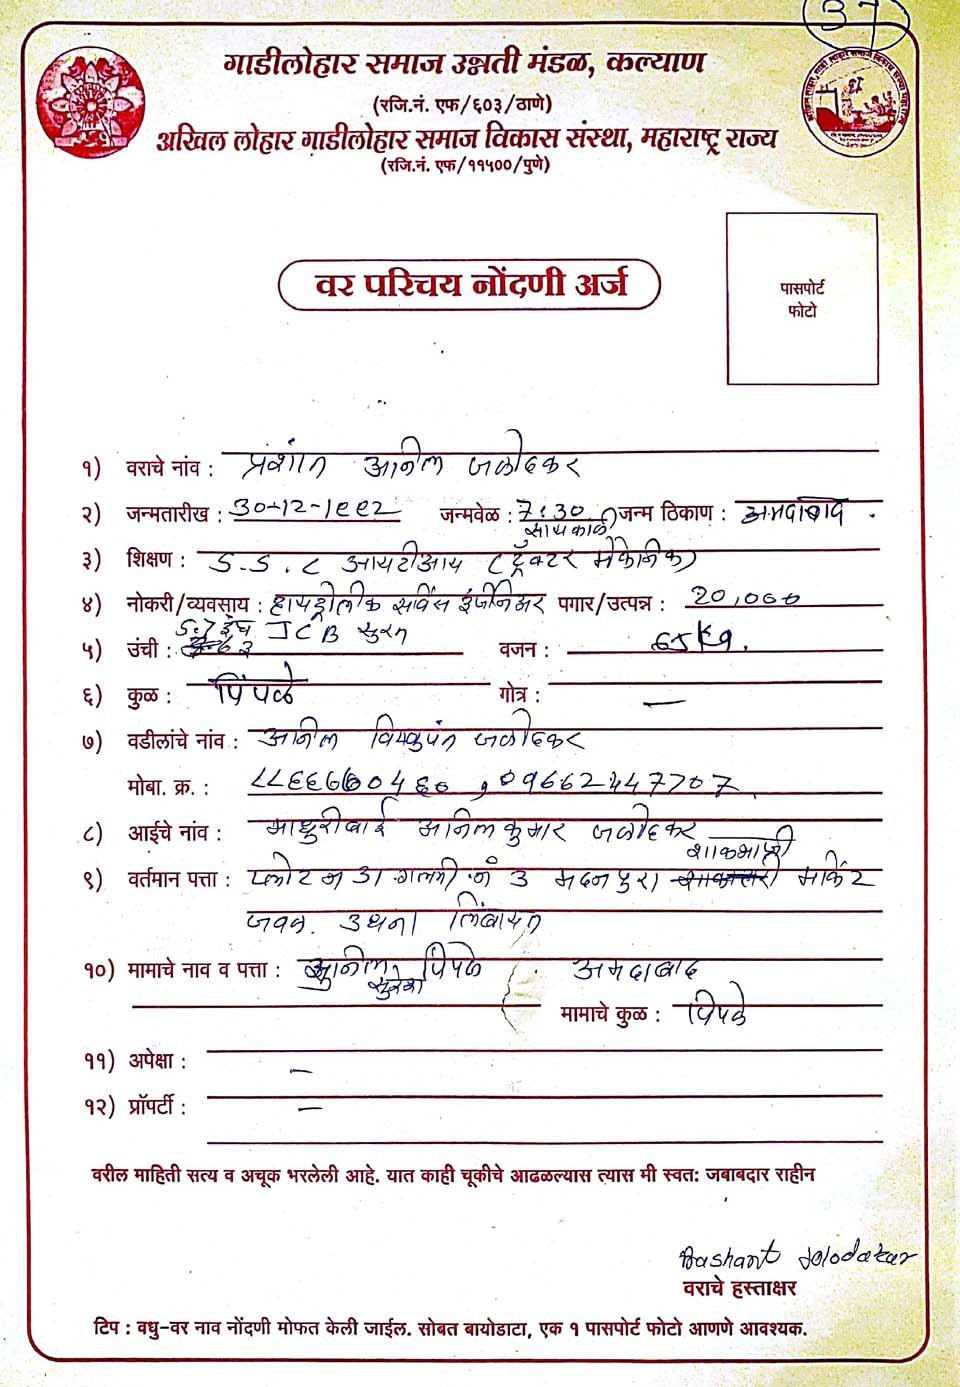 37
गाडीलोहार समाज उन्नती मंडळ, कल्याण
(रजि.नं. एफ/६०३/ठाणे)
अखिल लोहार गाडीलोहार समाज विकास संस्था, महाराष्ट्र राज्य
(रजि.नं. एफ/११५००/पुणे)
पासपोर्ट
फोटो
वर परिचय नोंदणी अर्ज
१) वराचे नांव : प्रशांत अनिल जळोदकर
२) जन्मतारीख : 30-12-१९९2 जन्मवेळ : 7:30 सायकाळी जन्म ठिकाण : अमदाबाद.
३) शिक्षण : S.S.C आयटीआय (ट्रॅक्टर मेकेनिक)
४) नोकरी/व्यवसाय : हायड्रोलीक सर्विस इंजीनिअर पगार/उत्पन्न : 20,000
JCB सुरत
५) उंची : 5:7 इंच वजन : 65 Kg.
६) कुळ : पिंपळे गोत्र : —
७) वडीलांचे नांव : अनिल जळोदकर
मोबा. क्र. : , 09662447707
८) आईचे नांव : माधुरीबाई अनिलकुमार जळोदकर
९) वर्तमान पत्ता : प्लोट न 31 गल्ली नं 3 मदनपुरा मार्केट
जवळ. उधना लिंबायत
१०) मामाचे नाव व पत्ता : सुनिल पिंपळे अमदाबाद
सुरेश
मामाचे कुळ : पिंपळे
११) अपेक्षा : —
१२) प्रॉपर्टी : —
वरील माहिती सत्य व अचूक भरलेली आहे. यात काही चूकीचे आढळल्यास त्यास मी स्वत: जबाबदार राहीन
Prashant Jalodakar
वराचे हस्ताक्षर
टिप : वधु-वर नाव नोंदणी मोफत केली जाईल. सोबत बायोडाटा, एक १ पासपोर्ट फोटो आणणे आवश्यक.